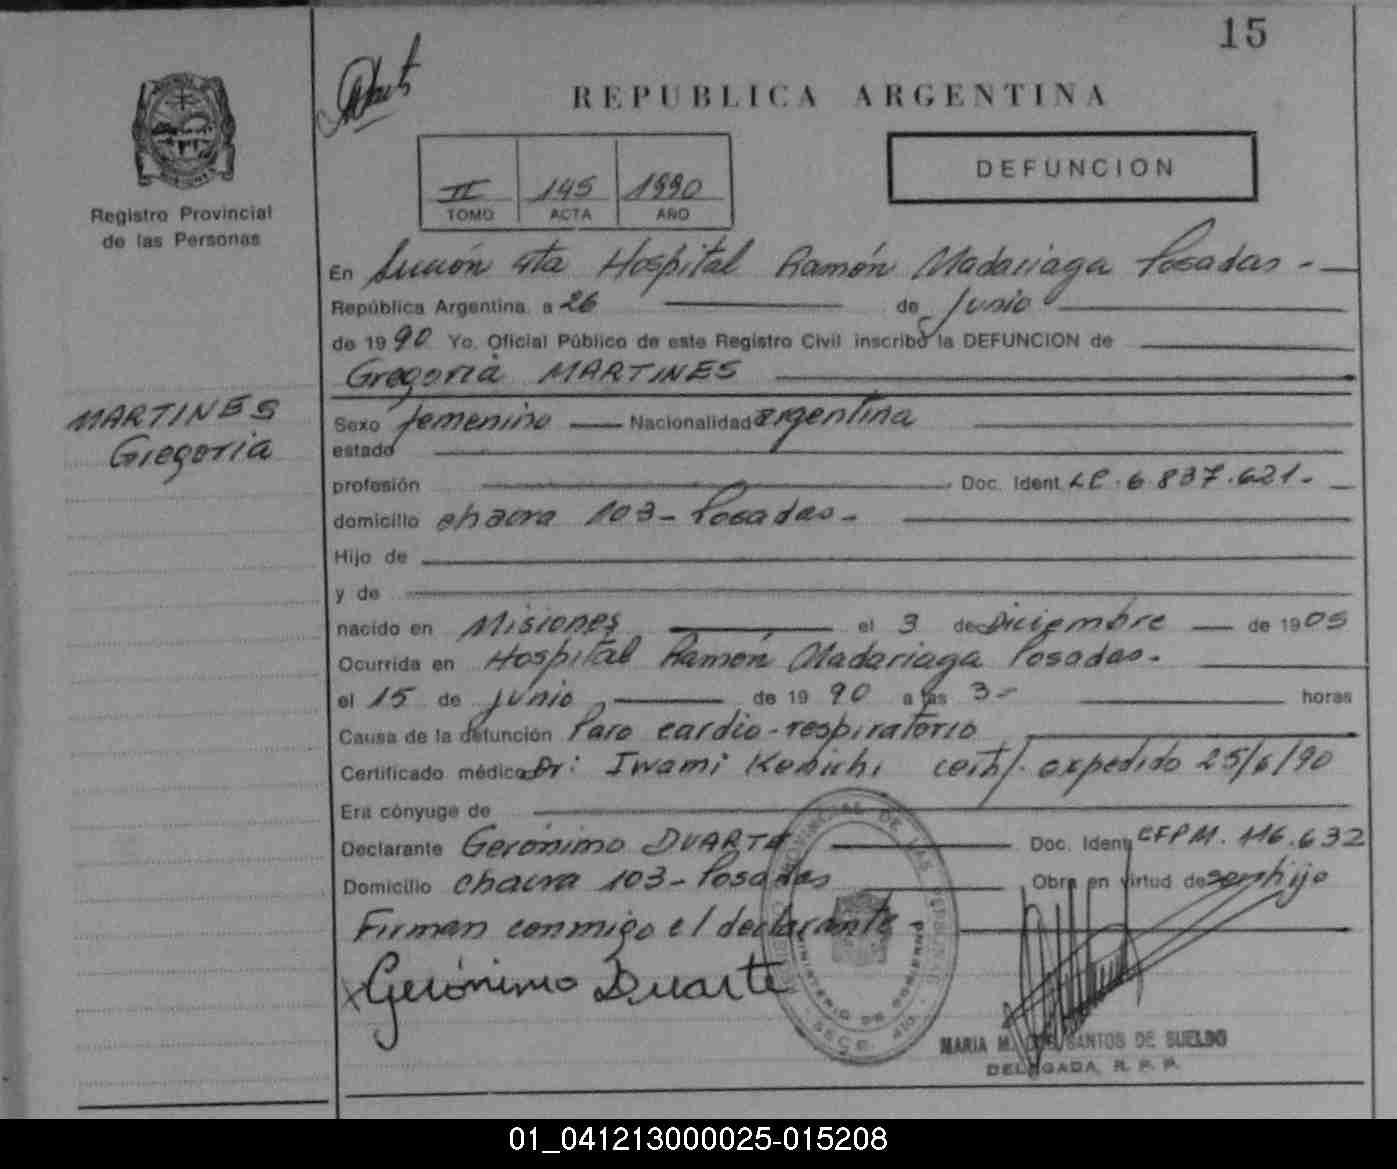 15
REPUBLICA ARGENTINA
DEFUNCION
II 145 1990
TOMO ACTA AÑO
Registro Provincial
de las Personas
En Sección 4ta Hospital Ramón Madariaga Posadas -
República Argentina, a 26 de Junio
de 1990 Yo, Oficial Público de este Registro Civil inscribo la DEFUNCION de
Gregoria MARTINES
MARTINES
Gregoria
Sexo femenino Nacionalidad argentina
estado
profesión Doc. Ident. LC. 6.837.621.-
domicilio chacra 103 - Posadas -
Hijo de
y de
nacido en Misiones el 3 de Diciembre de 1905
Ocurrida en Hospital Ramón Madariaga Posadas.
el 15 de junio de 1990 a las 3- horas
Causa de la defunción Paro cardio-respiratorio
Certificado médico Dr: Iwami Kenichi cert/. expedido 25/6/90
Era cónyuge de
Declarante Gerónimo DUARTE Doc. Ident. CFPM. 116.632
Domicilio chacra 103 - Posadas Obra en virtud de ser hijo
Firman conmigo el declarante
x Gerónimo Duarte
MARIA M. DOS SANTOS DE SUELDO
DELEGADA, R. P. P.
MINISTERIO DE GOBIERNO
01_041213000025-015208